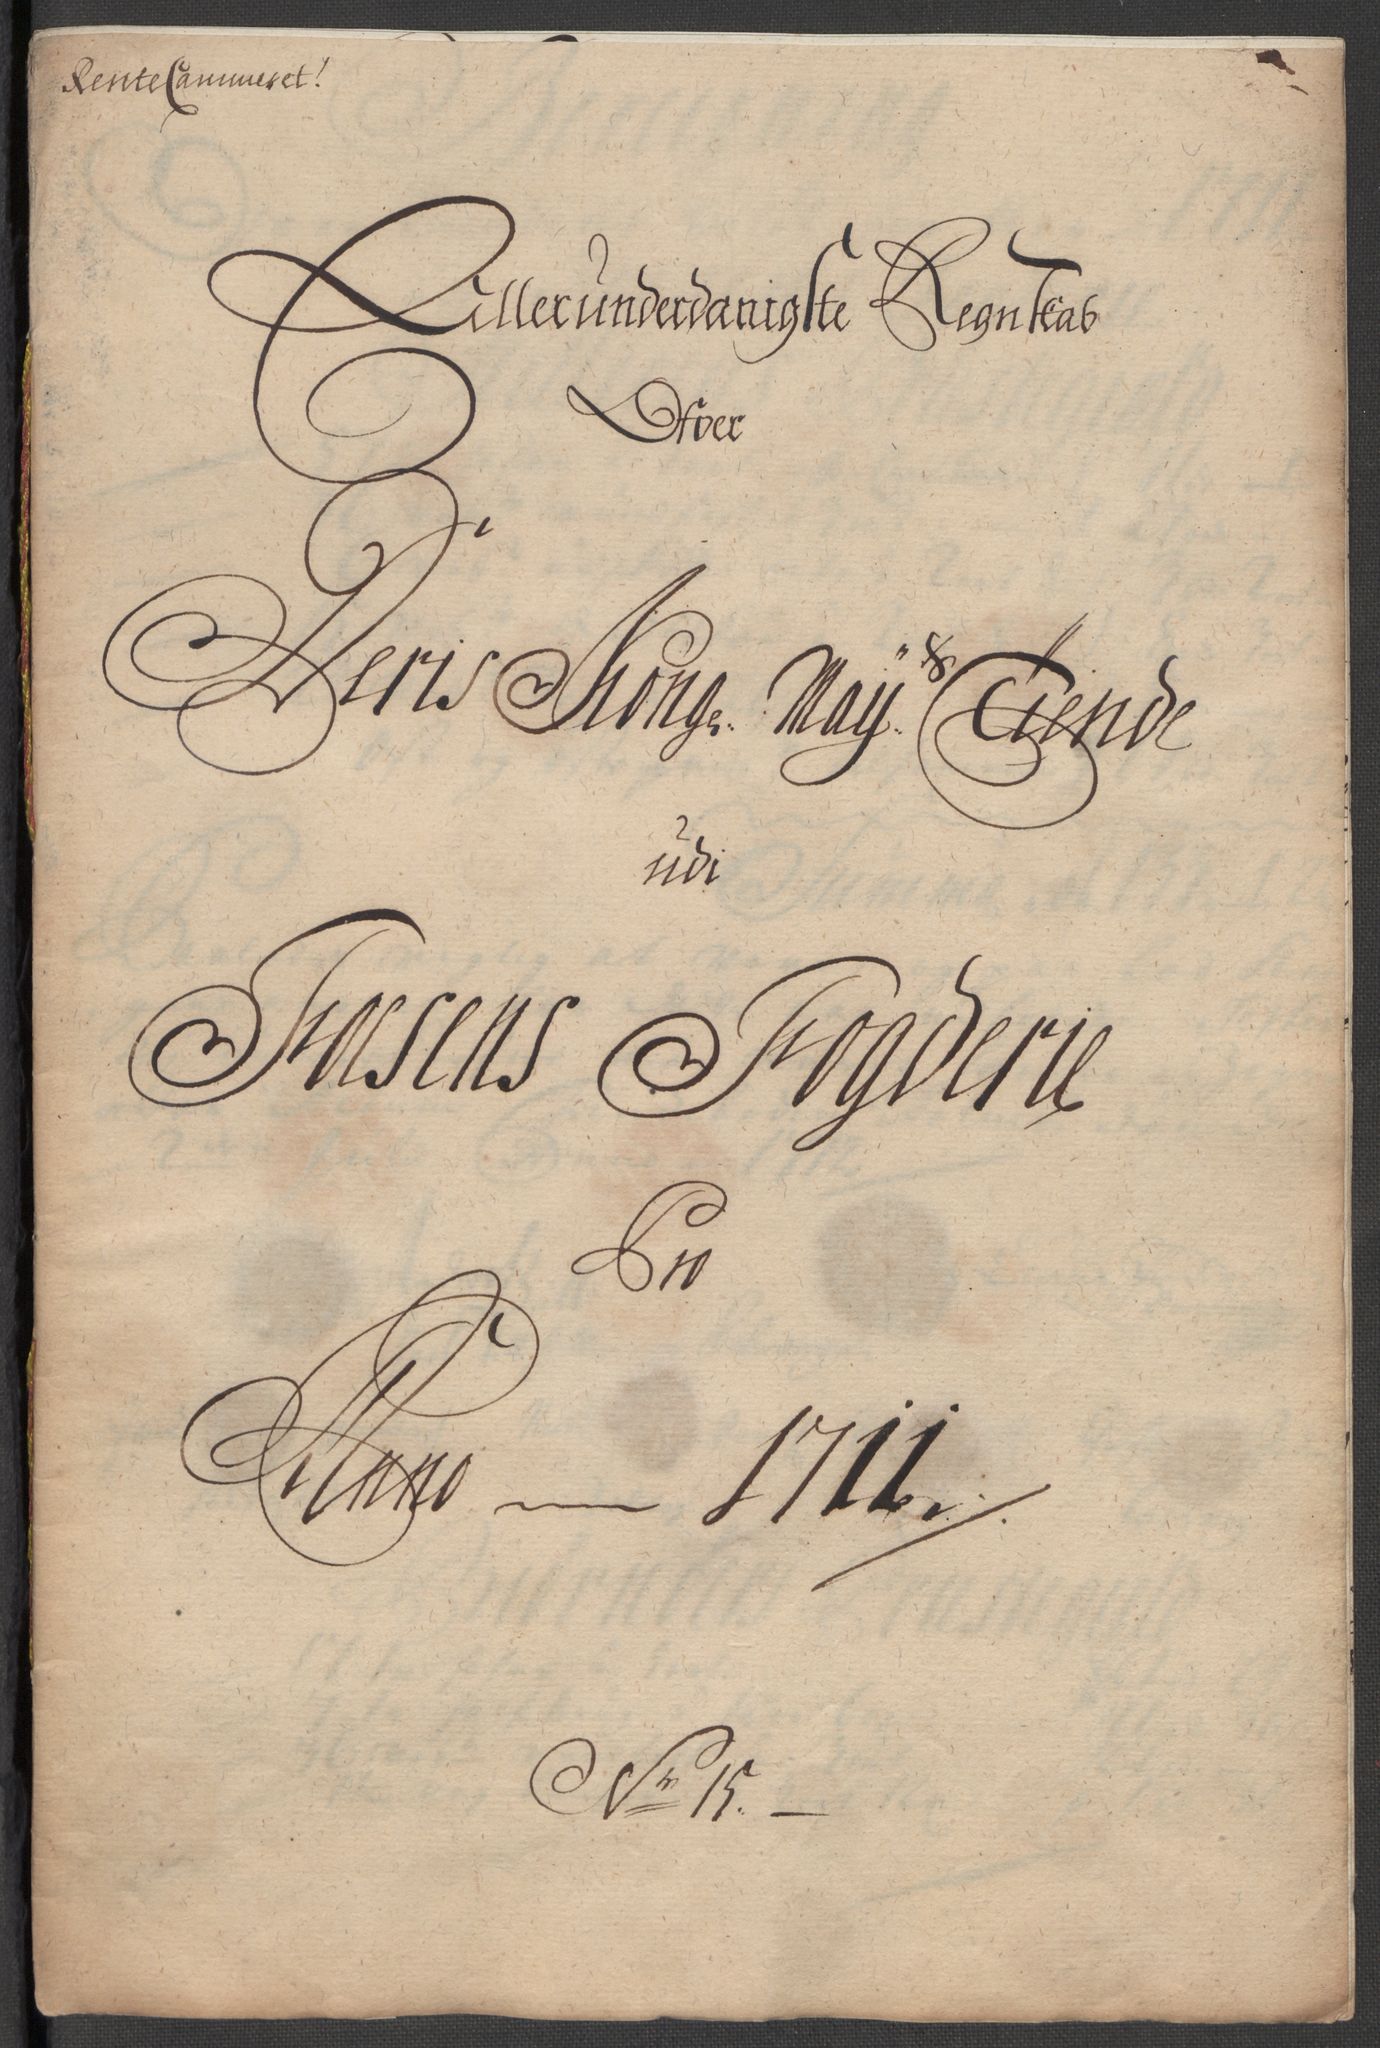 RenteCammeret!
Alleründerdanigste Regnskab
Ofver
Deris Kong. Maÿ.ts Tiende
üdi
Fosens Fogderie
Pro
Anno — 1711.
No 15. —